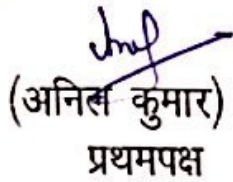 (अनिल कुमार)
प्रथमपक्ष